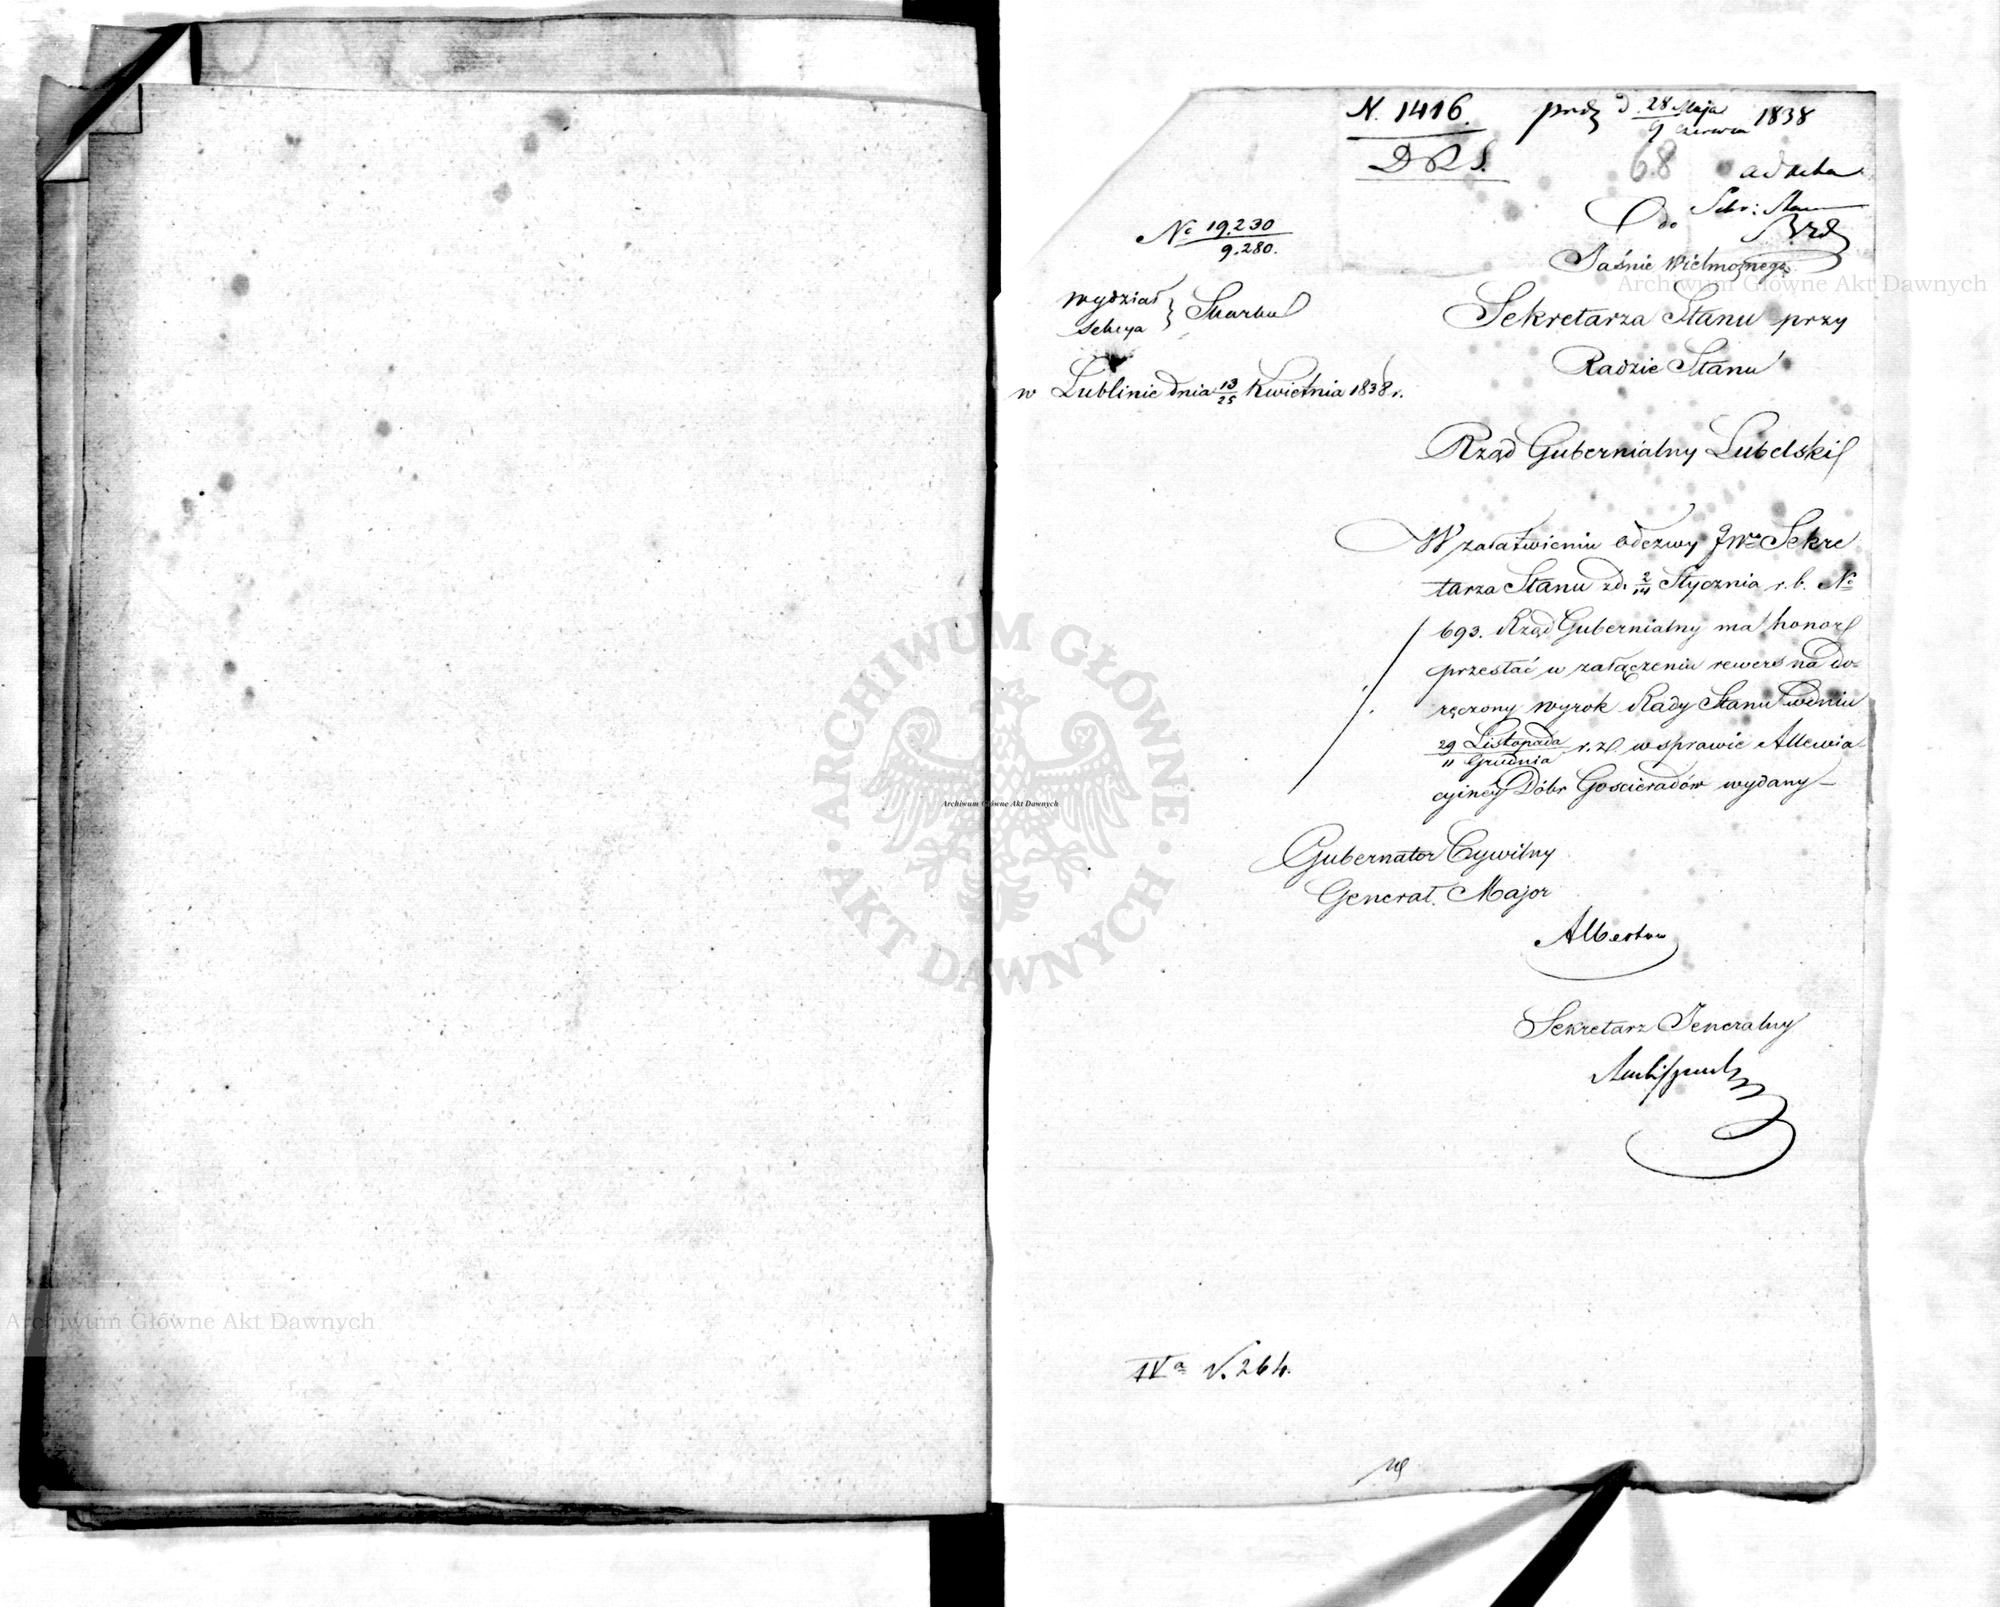 N. 1416.
D R S.
prdz d. 28 Maja / 9 Czerwca 1838
68
ad acta
No 19.230 / 9.280.
Do
Jaśnie Wielmożnego
Sekretarza Stanu przy
Radzie Stanu
Wydział } Skarbu
Sekcya
w Lublinie dnia 13/25 Kwietnia 1838 r.
Rząd Gubernialny Lubelski
W załatwieniu odezwy JWgo Sekre
tarza Stanu z d. 2/14 Stycznia r. b. No
693. Rząd Gubernialny ma honor
przesłać w załączeniu rewers na do-
ręczony wyrok Rady Stanu w dniu
29 Listopada / 11 Grudnia r. z. w sprawie Allewia
cyinéy Dóbr Gościeradów wydany –
Gubernator Cywilny
Generał Major
Albertow
Sekretarz Jeneralny
IVa N. 264.
Archiwum Główne Akt Dawnych
ARCHIWUM GŁÓWNE · AKT DAWNYCH ·
Archiwum Główne Akt Dawnych
Archiwum Główne Akt Dawnych